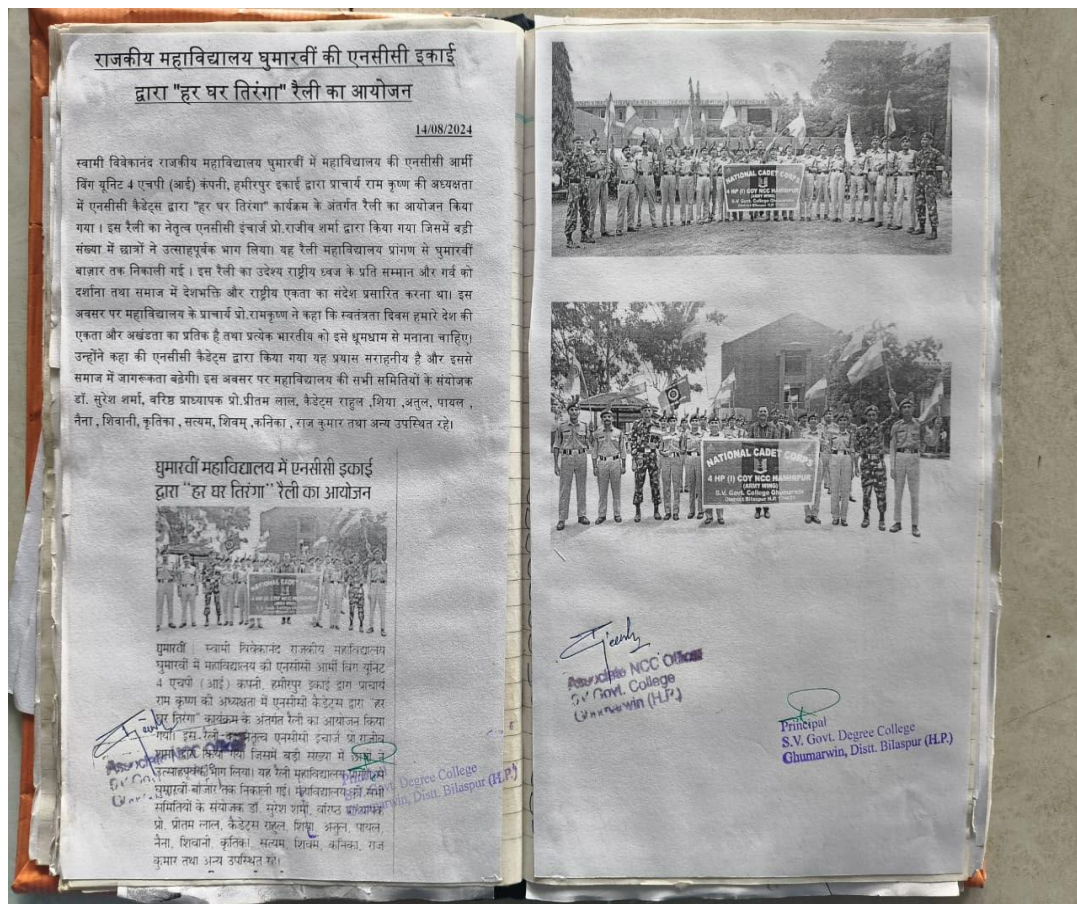 राजकीय महाविद्यालय घुमारवीं की एनसीसी इकाई
द्वारा "हर घर तिरंगा" रैली का आयोजन
14/08/2024
स्वामी विवेकानंद राजकीय महाविद्यालय घुमारवीं में महाविद्यालय की एनसीसी आर्मी
विंग यूनिट 4 एचपी (आई) कंपनी, हमीरपुर इकाई द्वारा प्राचार्य राम कृष्ण की अध्यक्षता
में एनसीसी कैडेट्स द्वारा "हर घर तिरंगा" कार्यक्रम के अंतर्गत रैली का आयोजन किया
गया । इस रैली का नेतृत्व एनसीसी इंचार्ज प्रो.राजीव शर्मा द्वारा किया गया जिसमें बड़ी
संख्या में छात्रों ने उत्साहपूर्वक भाग लिया। यह रैली महाविद्यालय प्रांगण से घुमारवीं
बाज़ार तक निकाली गई । इस रैली का उदेश्य राष्ट्रीय ध्वज के प्रति सम्मान और गर्व को
दर्शाना तथा समाज में देशभक्ति और राष्ट्रीय एकता का संदेश प्रसारित करना था। इस
अवसर पर महाविद्यालय के प्राचार्य प्रो.रामकृष्ण ने कहा कि स्वतंत्रता दिवस हमारे देश की
एकता और अखंडता का प्रतिक है तथा प्रत्येक भारतीय को इसे धूमधाम से मनाना चाहिए।
उन्होंने कहा की एनसीसी कैडेट्स द्वारा किया गया यह प्रयास सराहनीय है और इससे
समाज में जागरूकता बढ़ेगी। इस अवसर पर महाविद्यालय की सभी समितियों के संयोजक
डॉ. सुरेश शर्मा, वरिष्ठ प्राध्यापक प्रो.प्रीतम लाल, कैडेट्स राहुल ,शिया ,अतुल, पायल ,
नैना , शिवानी, कृतिका , सत्यम, शिवम् ,कनिका , राज कुमार तथा अन्य उपस्थित रहे।
घुमारवीं महाविद्यालय में एनसीसी इकाई
द्वारा "हर घर तिरंगा" रैली का आयोजन
NATIONAL CADET CORPS
4 HP (I) COY NCC HAMIRPUR
घुमारवीं | स्वामी विवेकानंद राजकीय महाविद्यालय
घुमारवीं में महाविद्यालय की एनसीसी आर्मी विंग यूनिट
4 एचपी (आई) कंपनी, हमीरपुर इकाई द्वारा प्राचार्य
राम कृष्ण की अध्यक्षता में एनसीसी कैडेट्स द्वारा "हर
घर तिरंगा" कार्यक्रम के अंतर्गत रैली का आयोजन किया
गया। इस रैली का नेतृत्व एनसीसी इंचार्ज प्रो राजीव
शर्मा द्वारा किया गया जिसमें बड़ी संख्या में छात्रों ने
उत्साहपूर्वक भाग लिया। यह रैली महाविद्यालय प्रांगण से
घुमारवीं बाजार तक निकाली गई। महाविद्यालय की सभी
समितियों के संयोजक डॉ. सुरेश शर्मा, वरिष्ठ प्राध्यापक
प्रो. प्रीतम लाल, कैडेट्स राहुल, शिया, अतुल, पायल,
नैना, शिवानी, कृतिका, सत्यम, शिवम, कनिका, राज
कुमार तथा अन्य उपस्थित रहे।
Associate NCC Officer
Principal
S.V. Govt. Degree College
Ghumarwin, Distt. Bilaspur (H.P.)
NATIONAL CADET CORPS
4 HP (I) COY NCC HAMIRPUR
(ARMY WING)
S.V. Govt. College Ghumarwin
NATIONAL CADET CORPS
4 HP (I) COY NCC HAMIRPUR
(ARMY WING)
S.V. Govt. College Ghumarwin
District Bilaspur H.P.
Associate NCC Officer
S.V Govt. College
Ghumarwin (H.P.)
Principal
S.V. Govt. Degree College
Ghumarwin, Distt. Bilaspur (H.P.)